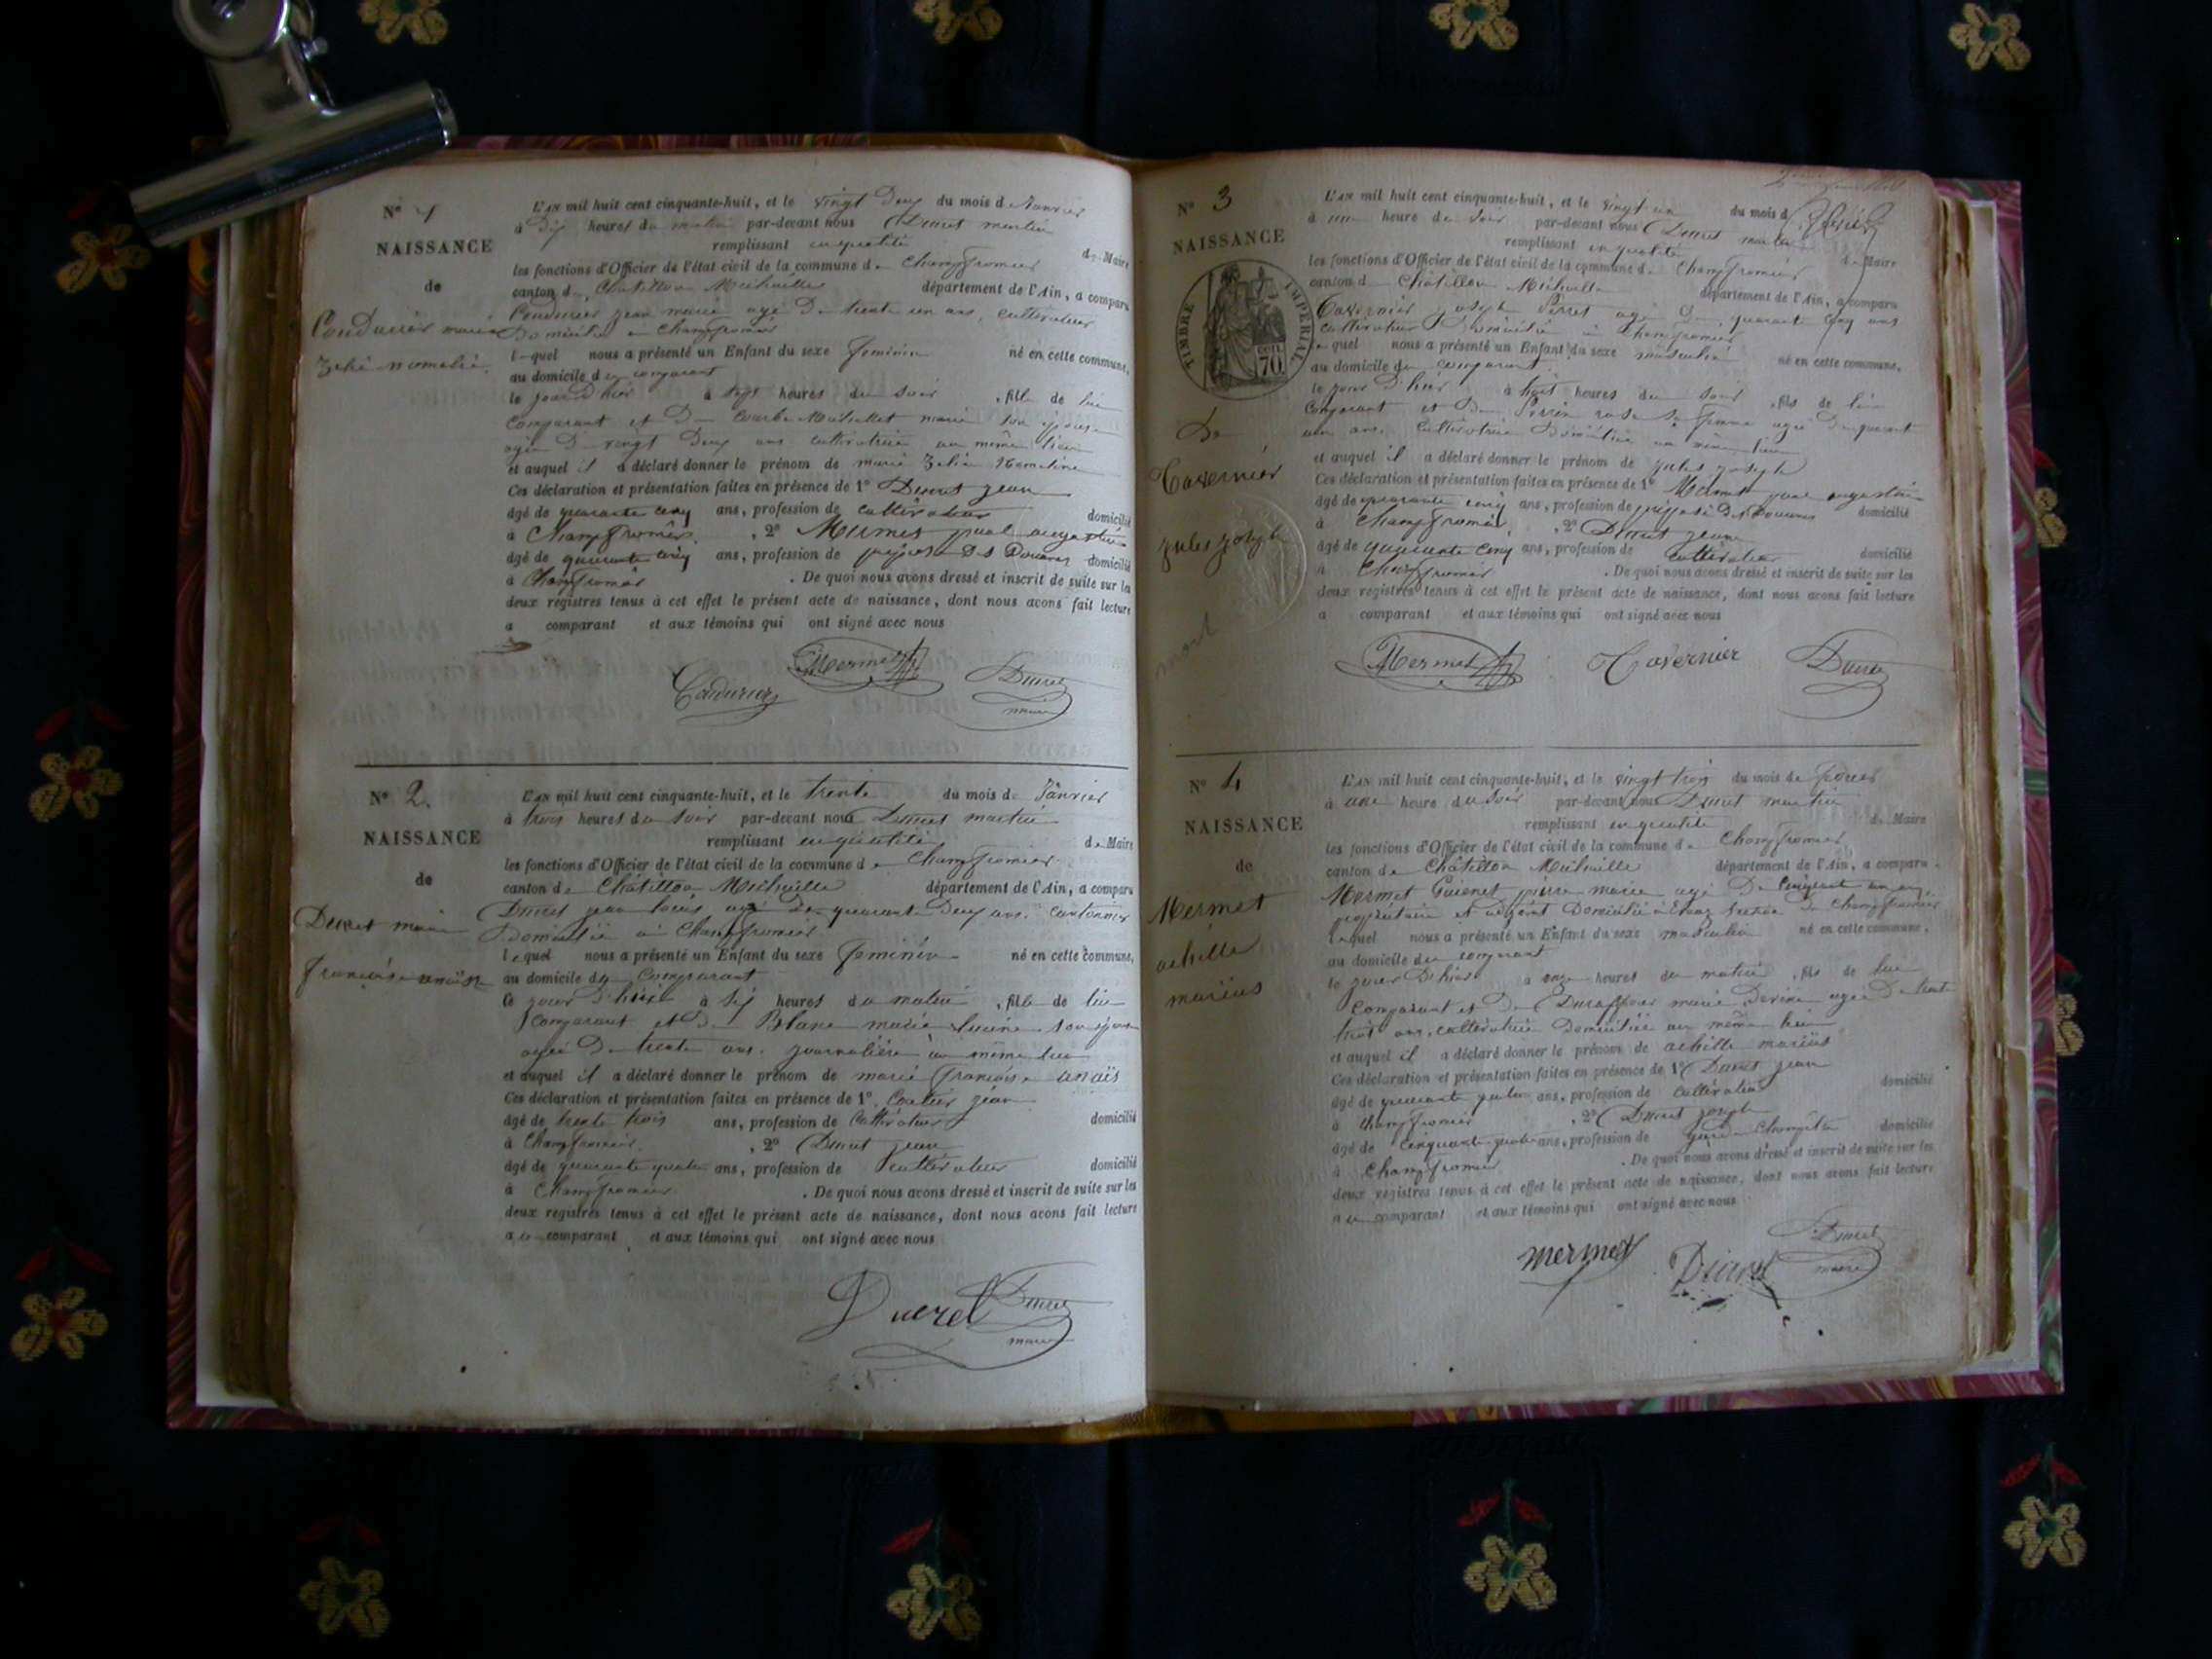 N° 1
NAISSANCE
de
Coudurier marie
L'AN mil huit cent cinquante-huit, et le vingt Deux du mois de Janvier
à Dix heures du matin par-devant nous Ducret martin
remplissant en qualité de Maire
les fonctions d'Officier de l'état civil de la commune de Champfromier
canton de Châtillon Michaille département de l'Ain, a comparu
Coudurier jean marie agé De trente un ans, cultivateur
Domicilié a Champfromier
lequel nous a présenté un Enfant du sexe feminin né en cette commune,
au domicile du comparant
le jour d'hier à sept heures du soir , fille de lui
comparant et De marie son épouse
agée De vingt Deux ans cultivatrice au même lieu
et auquel il a déclaré donner le prénom de marie
Ces déclaration et présentation faites en présence de 1° Ducret jean
âgé de quarante cinq ans, profession de cultivateur domicilié
à Champfromier , 2° Mermet paul augustin
âgé de quarante cinq ans, profession de préposé Des Douanes domicilié
à Champfromier . De quoi nous avons dressé et inscrit de suite sur les
deux registres tenus à cet effet le présent acte de naissance, dont nous avons fait lecture
a comparant et aux témoins qui ont signé avec nous
Mermet
Coudurier Ducret
maire
N° 2
NAISSANCE
de
Ducret marie
françoise anaïs
L'AN mil huit cent cinquante-huit, et le trente du mois de Janvier
à trois heures du soir par-devant nous Ducret martin
remplissant en qualité de Maire
les fonctions d'Officier de l'état civil de la commune de Champfromier
canton de Châtillon Michaille département de l'Ain, a comparu
Ducret jean louis agé De quarante Deux ans, cantonnier
Domicilié à Champfromier
lequel nous a présenté un Enfant du sexe feminin né en cette commune,
au domicile du comparant
le jour d'hier à six heures du matin , fille de lui
comparant et De Blanc marie son épouse
agée De trente ans, journalière au même lieu
et auquel il a déclaré donner le prénom de marie françoise anaïs
Ces déclaration et présentation faites en présence de 1° jean
âgé de trente trois ans, profession de cultivateur domicilié
à Champfromier , 2° Ducret jean
âgé de quarante quatre ans, profession de cultivateur domicilié
à Champfromier . De quoi nous avons dressé et inscrit de suite sur les
deux registres tenus à cet effet le présent acte de naissance, dont nous avons fait lecture
a u comparant et aux témoins qui ont signé avec nous
Ducret Ducret
maire
N° 3
NAISSANCE
TIMBRE IMPÉRIAL
CEN. 70
De
Tavernier
jules joseph
mort
L'AN mil huit cent cinquante-huit, et le vingt un du mois de février
à une heure du soir par-devant nous Ducret martin
remplissant en qualité de Maire
les fonctions d'Officier de l'état civil de la commune de Champfromier
canton de Châtillon Michaille département de l'Ain, a comparu
Tavernier joseph agé De quarante cinq ans
cultivateur Domicilié à Champfromier
lequel nous a présenté un Enfant du sexe masculin né en cette commune,
au domicile du comparant
le jour d'hier à huit heures du soir , fils de lui
comparant et De Perrin rose sa femme agée De quarante
un ans, cultivatrice Domiciliée au même lieu
et auquel il a déclaré donner le prénom de jules joseph
Ces déclaration et présentation faites en présence de 1° Mermet paul augustin
âgé de quarante cinq ans, profession de préposé Des Douanes domicilié
à Champfromier , 2° Ducret jean
âgé de quarante cinq ans, profession de cultivateur domicilié
à Champfromier . De quoi nous avons dressé et inscrit de suite sur les
deux registres tenus à cet effet le présent acte de naissance, dont nous avons fait lecture
a comparant et aux témoins qui ont signé avec nous
Mermet Tavernier Ducret
N° 4
NAISSANCE
de
Mermet
achille
marius
L'AN mil huit cent cinquante-huit, et le vingt trois du mois de fevrier
à une heure du soir par-devant nous Ducret martin
remplissant en qualité de Maire
les fonctions d'Officier de l'état civil de la commune de Champfromier
canton de Châtillon Michaille département de l'Ain, a comparu
Mermet pierre marie agé De cinquante un ans,
propriétaire et adjoint Domicilié à section De Champfromier
lequel nous a présenté un Enfant du sexe masculin né en cette commune,
au domicile du comparant
le jour D'hier à onze heures du matin , fils de lui
comparant et De Duraffour marie agée De trente
trois ans, cultivatrice Domiciliée au même lieu
et auquel il a déclaré donner le prénom de achille marius
Ces déclaration et présentation faites en présence de 1° Ducret jean
âgé de quarante quatre ans, profession de cultivateur domicilié
à Champfromier , 2° Ducret joseph
âgé de cinquante quatre ans, profession de garde Champêtre domicilié
à Champfromier . De quoi nous avons dressé et inscrit de suite sur les
deux registres tenus à cet effet le présent acte de naissance, dont nous avons fait lecture
a u comparant et aux témoins qui ont signé avec nous
mermet Ducret Ducret
maire